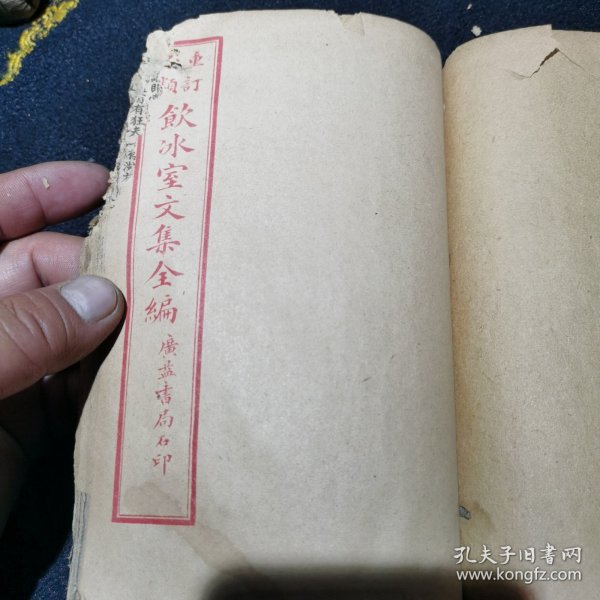 重訂
類
飲冰室文集全編
廣益書局石印
有狂夫
孔夫子旧书网
www.kongfz.com